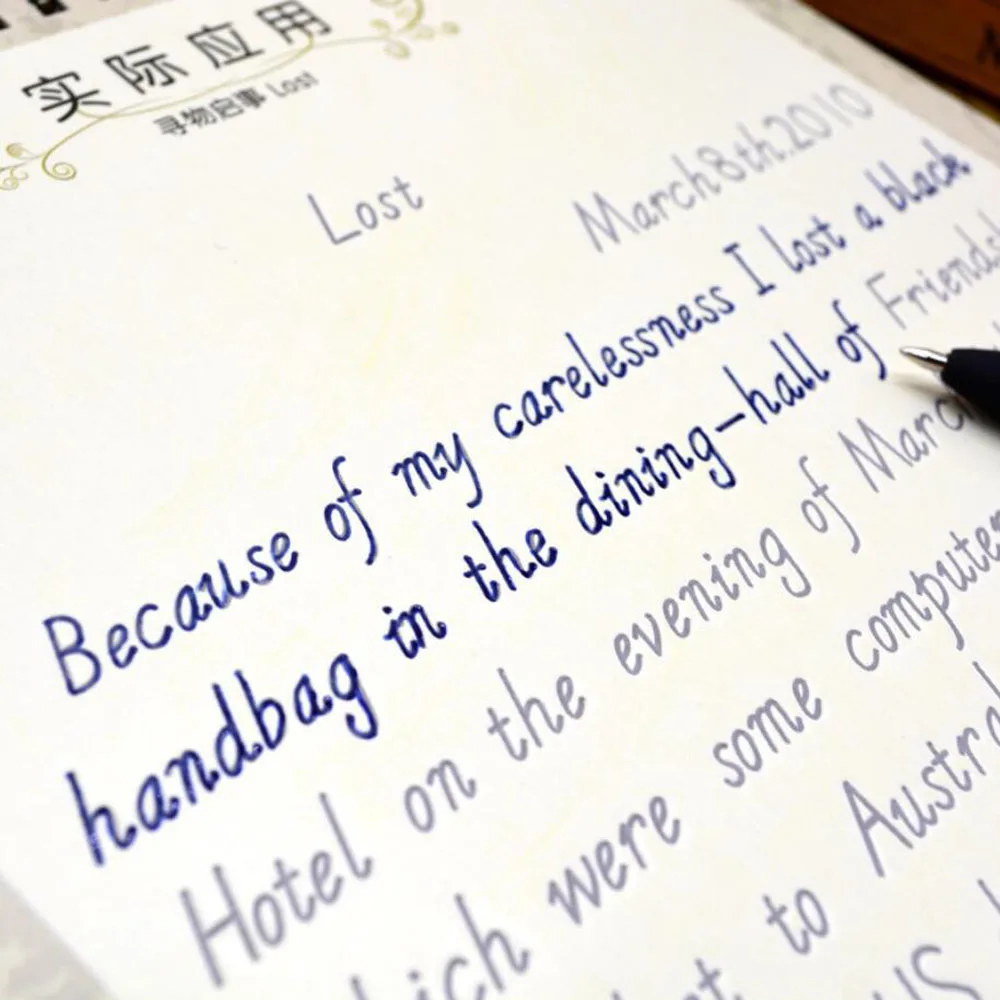 实际应用
寻物启事 Lost
Lost
March8th.2010
Because of my carelessness I lost a black
handbag in the dining-hall of
Hotel on the evening of
were some
to